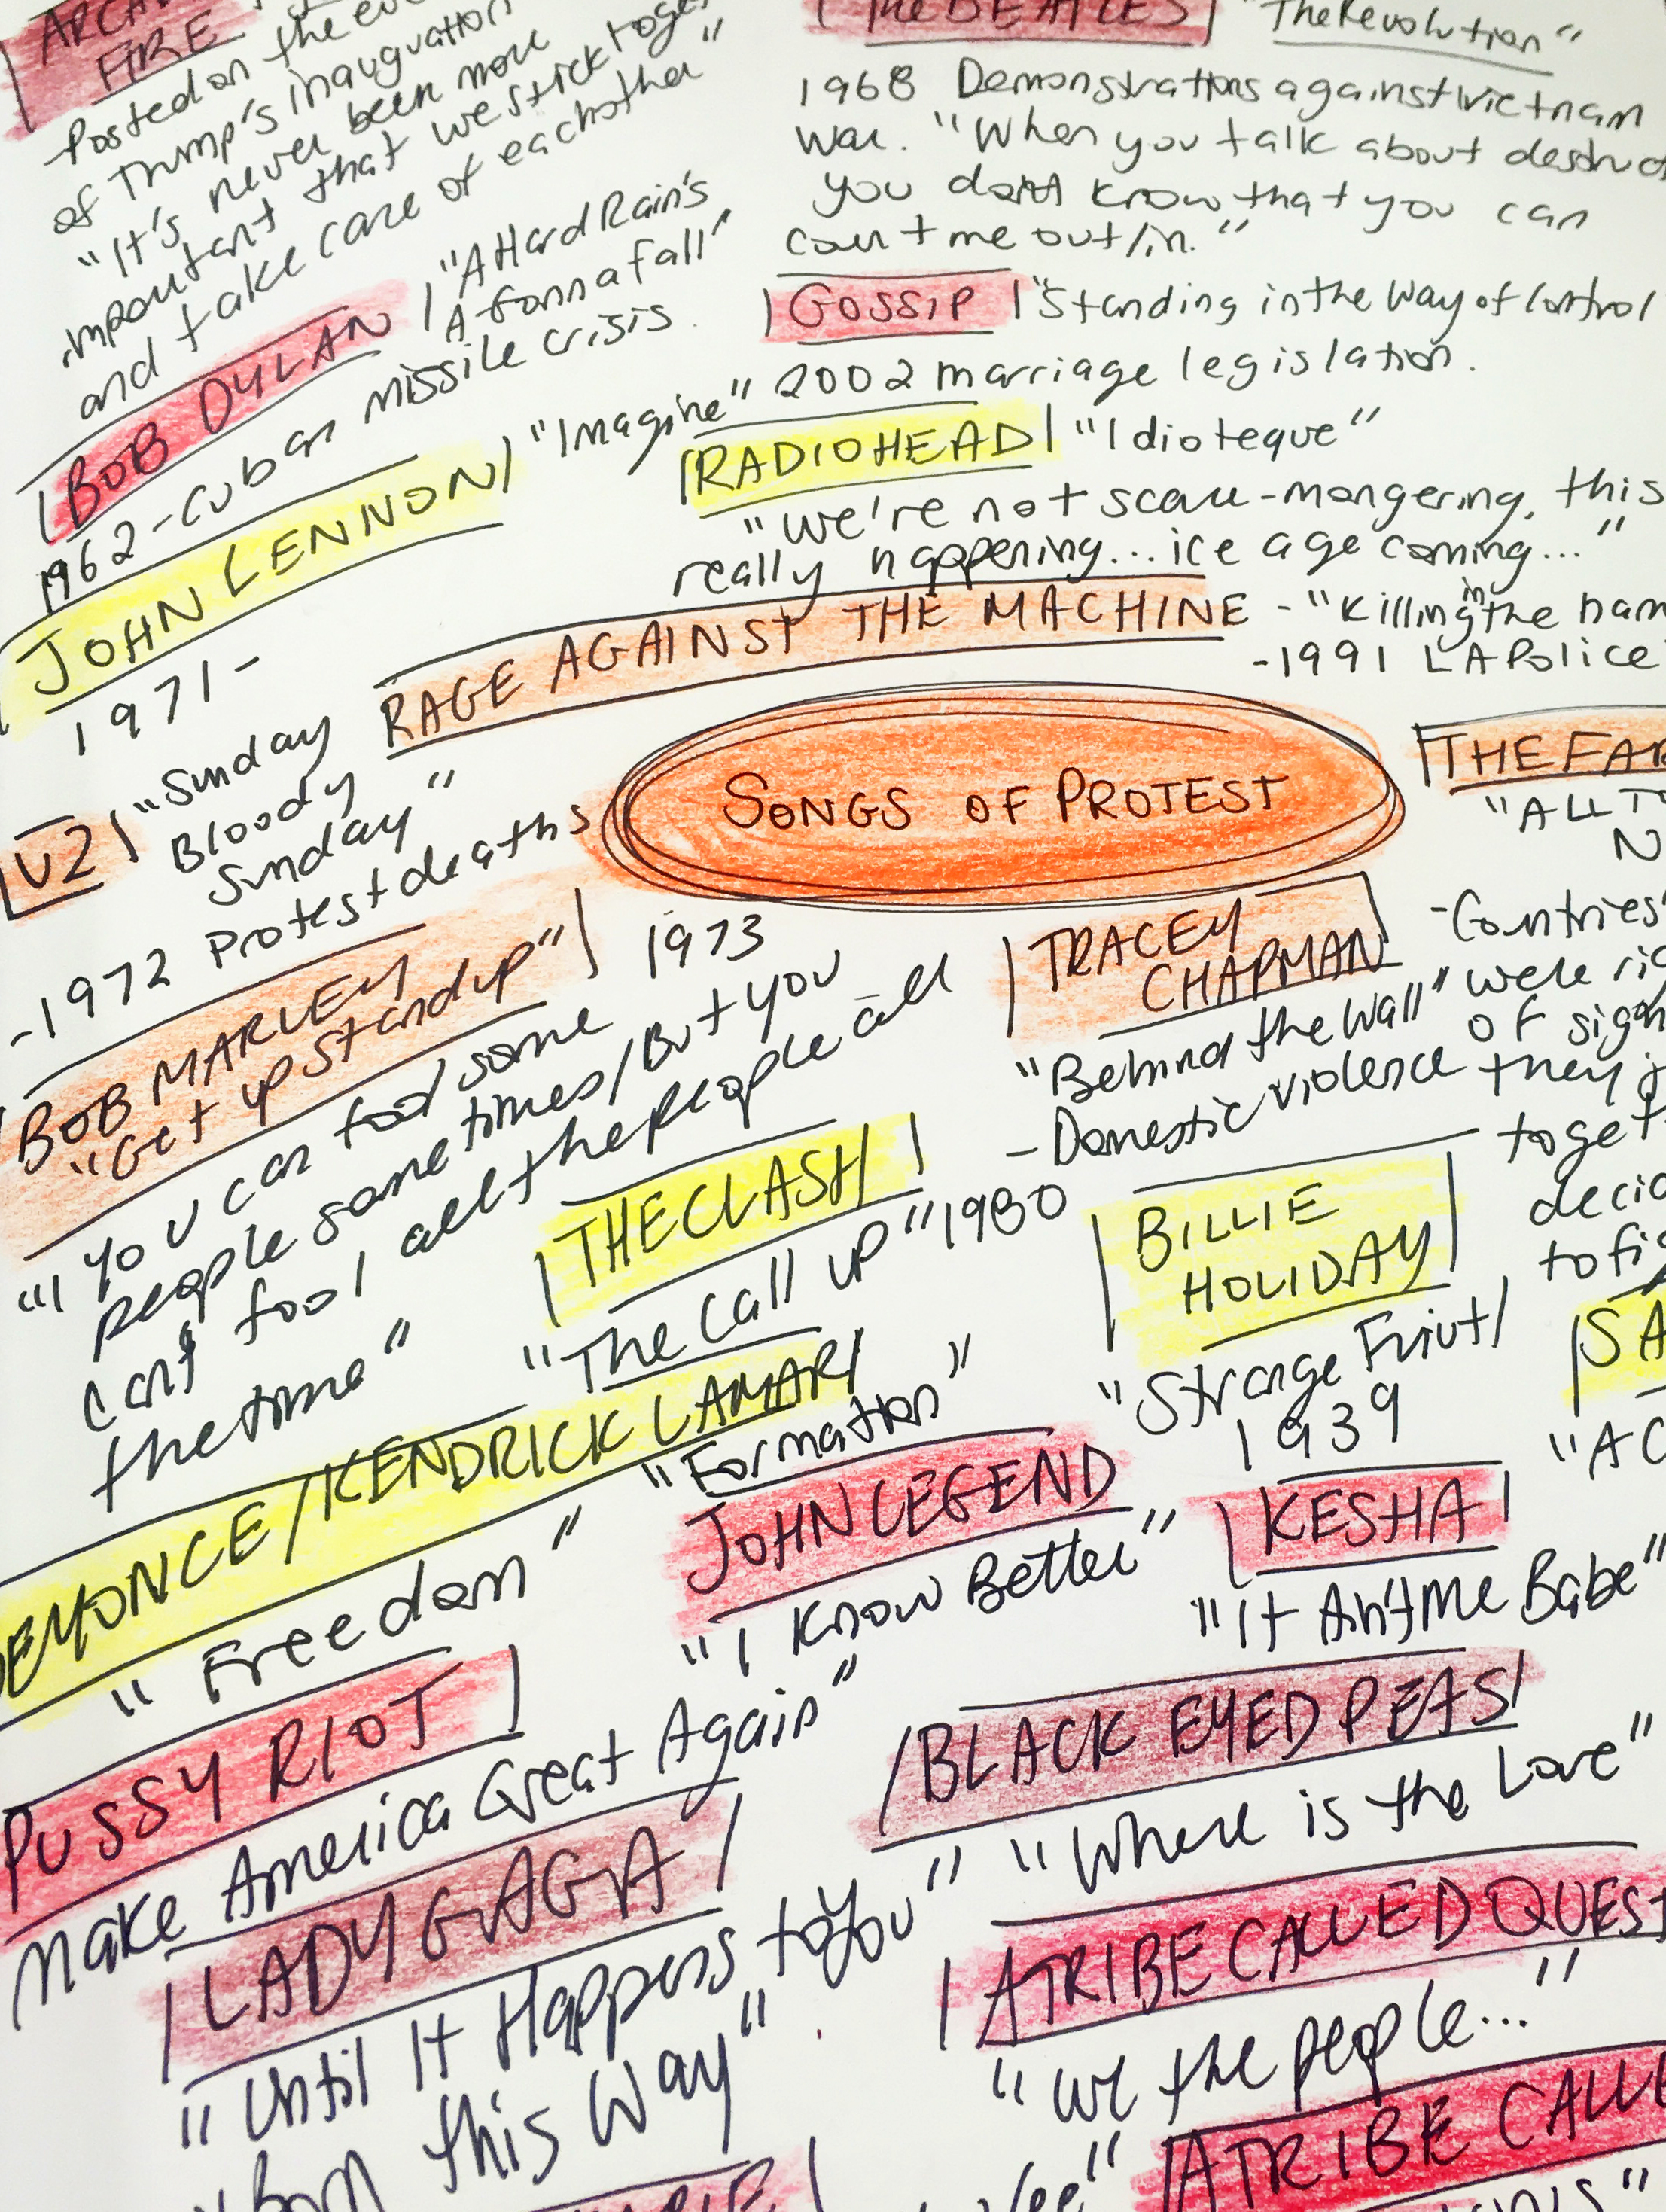 FIRE
Posted on the
of Trump's inauguration
"It's never been more
important that we stick
and take care of eachother"
THE BEATLES "The Revolution"
1968 Demonstrations against Vietnam
War. "When you talk about
you don't know that you can
count me out/in."
BOB DYLAN "A Hard Rain's
A-Gonna fall"
1962-Cuban missile crisis
GOSSIP "Standing in the Way of Control
2002 marriage legislation.
JOHN LENNON "Imagine"
1971-
RADIOHEAD "Idioteque"
"We're not scare-mongering, this
really happening... ice age coming..."
RAGE AGAINST THE MACHINE - "Killing in the
-1991 LA Police
U2 "Sunday
Bloody
Sunday"
-1972 Protest deaths
SONGS OF PROTEST
THE
"ALL
BOB MARLEY
"Get up Stand up" 1973
"I You can fool some
people sometimes/But you
cant fool all the people all
the time"
TRACEY
CHAPMAN
"Behind the Wall"
-Domestic violence
-Countries
were
of
they
together
to
THE CLASH
"The Call UP" 1980
BILLIE
HOLIDAY
"Strange Friut/
1939
BEYONCE/KENDRICK LAMAR/
"Formation"
"Freedom"
JOHN LEGEND
"I Know Better"
KESHA
"It Ain't Me Babe"
PUSSY RIOT
Make America Great Again"
BLACK EYED PEAS
"Where is the Love"
LADY GAGA
"Until It Happens to You"
Born this Way"
A TRIBE CALLED QUEST
"We the people..."
A TRIBE